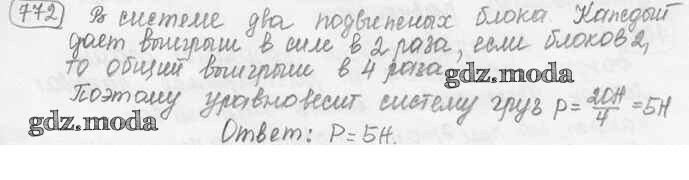 772 В системе два подвижных блока Каждый
дает выигрыш в силе в 2 раза, если блоков 2,
то общий выигрыш в 4 раза
gdz.moda
Поэтому уравновесит систему груз P = 20Н/4 = 5Н
gdz.moda
Ответ: P = 5Н.